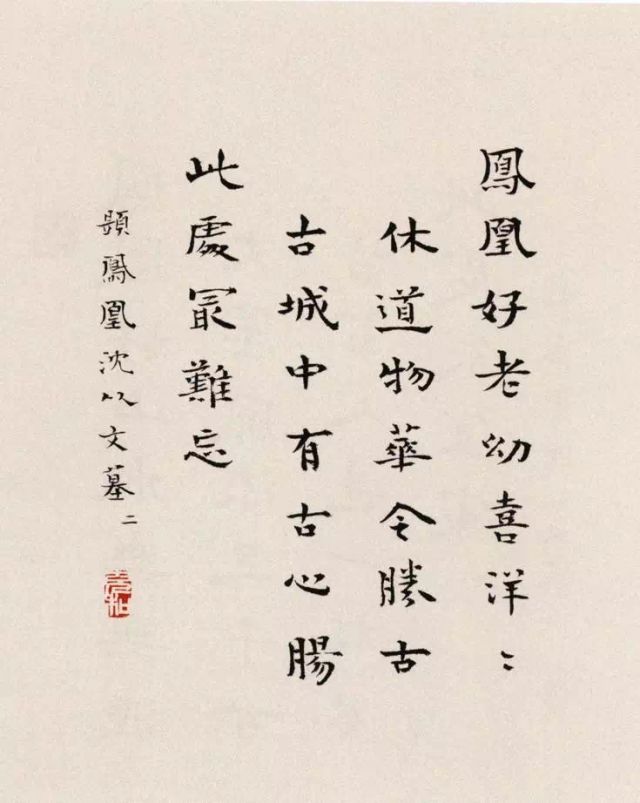 鳳凰好老幼喜洋〻
休道物華今勝古
古城中有古心腸
此處冣難忘
題鳳凰沈从文墓二
充和